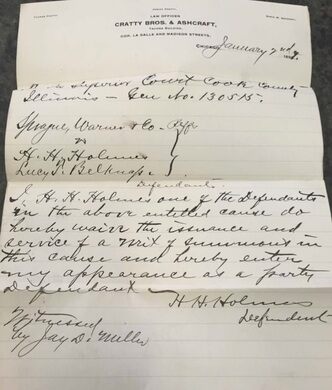 LAW OFFICES
CRATTY BROS. & ASHCRAFT,
TACOMA BUILDING,
COR. LA SALLE AND MADISON STREETS,
CHICAGO, January 2nd, 189
Superior Court Cook County
Illinois — Gen No. 130515.
Sprague, Warner & Co. Plffs
vs
H. H. Holmes
Lucy T. Belknap.
Defendants.
I, H. H. Holmes one of the Defendants
in the above entitled cause do
hereby waive the issuance and
service of a writ of summons in
this cause and hereby enter
my appearance as a party
Defendant
H. H. Holmes
Defendent
Witnessed
by Jay D. Miller